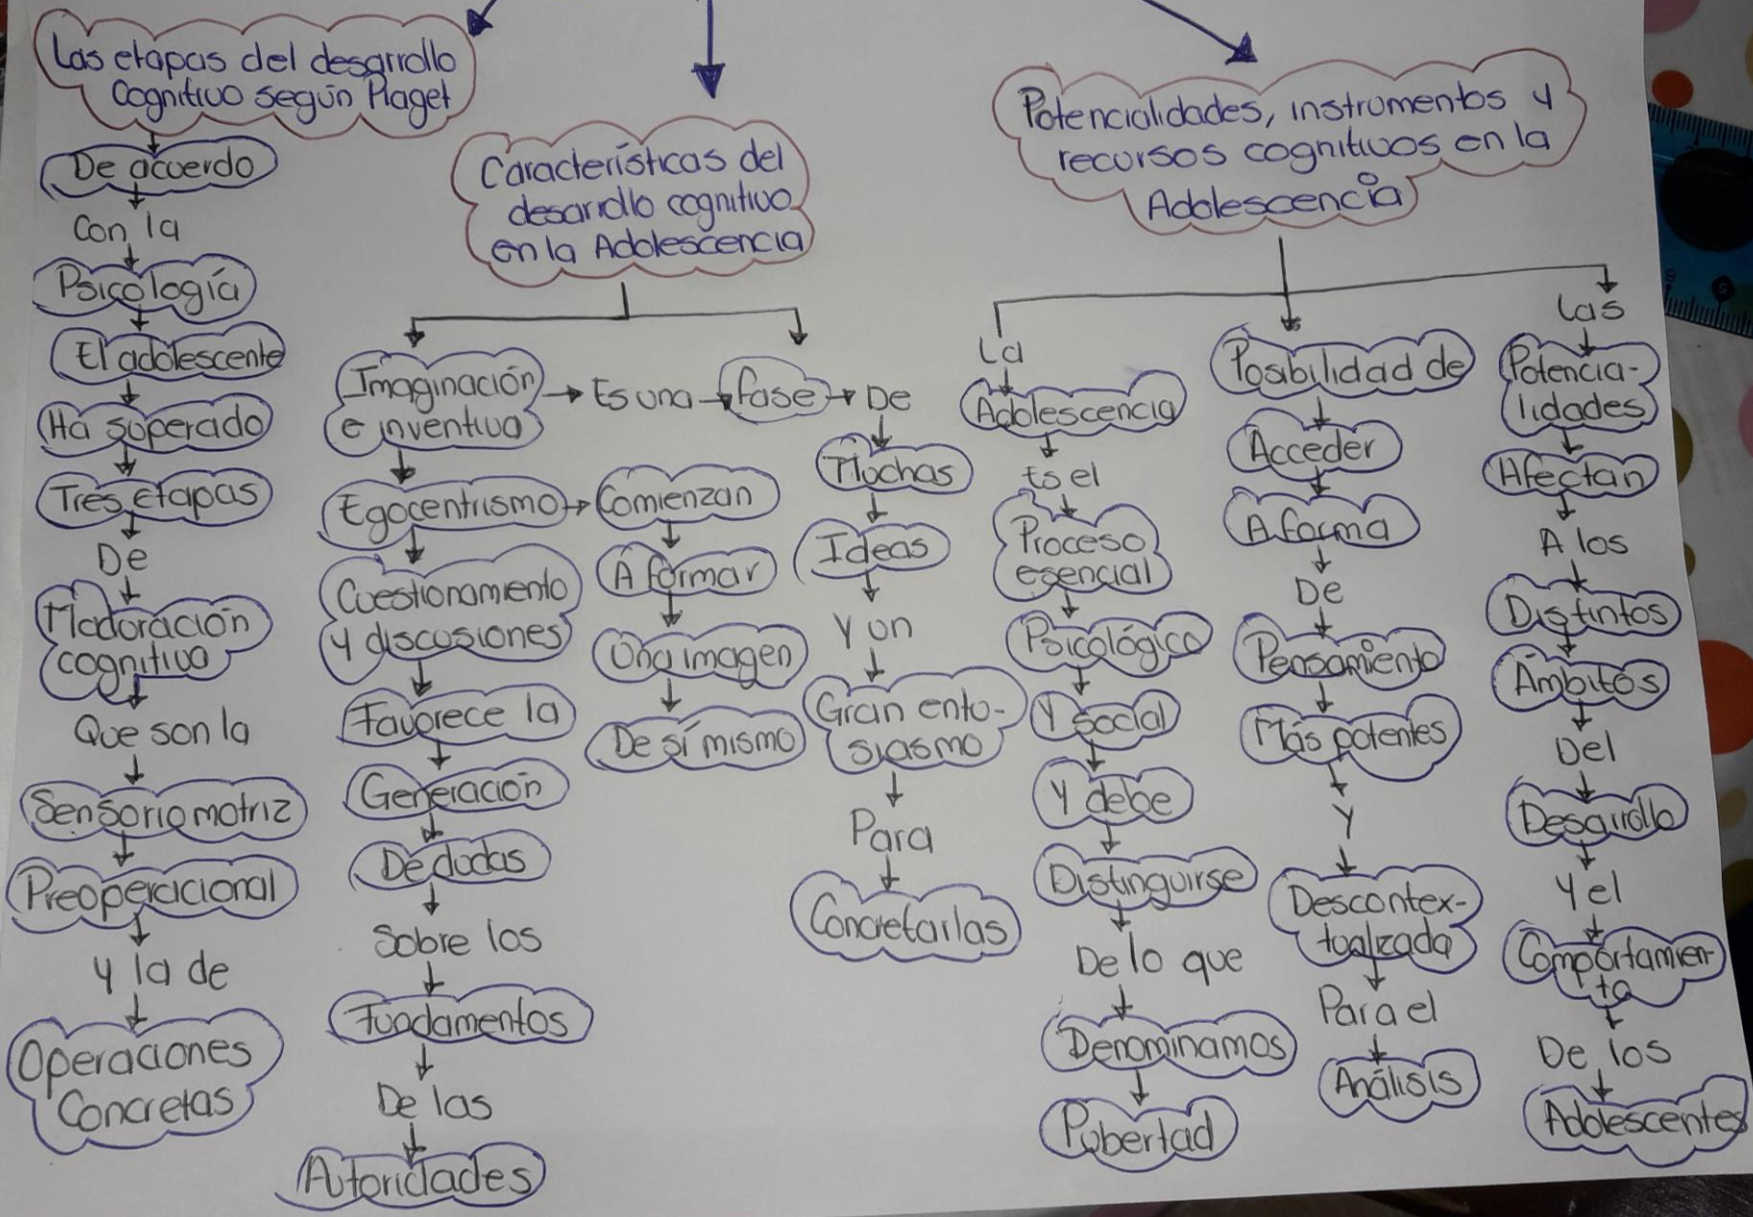 Las etapas del desarrollo
Cognitivo según Piaget
De acuerdo
Con la
Psicología
El adolescente
Ha superado
Tres etapas
De
Maduración
cognitiva
Que son la
Sensorio motriz
Preoperacional
y la de
Operaciones
Concretas
Características del
desarrollo cognitivo
en la Adolescencia
Imaginación
e inventiva
Es una
fase
De
Muchas
Ideas
Y un
Gran entu-
siasmo
Para
Concretarlas
Egocentrismo
Comienzan
A formar
Una imagen
De sí mismo
Cuestionamiento
y discusiones
Favorece la
Generación
De dudas
Sobre los
Fundamentos
De las
Autoridades
Potencialidades, instrumentos y
recursos cognitivos en la
Adolescencia
La
Adolescencia
Es el
Proceso
esencial
Psicológico
Y social
Y debe
Distinguirse
De lo que
Denominamos
Pubertad
Posibilidad de
Acceder
A forma
De
Pensamiento
Más potentes
Y
Descontex-
tualizada
Para el
Análisis
Las
Potencia-
lidades
Afectan
A los
Distintos
Ámbitos
Del
Desarrollo
Y el
Comportamien-
to
De los
Adolescentes
5